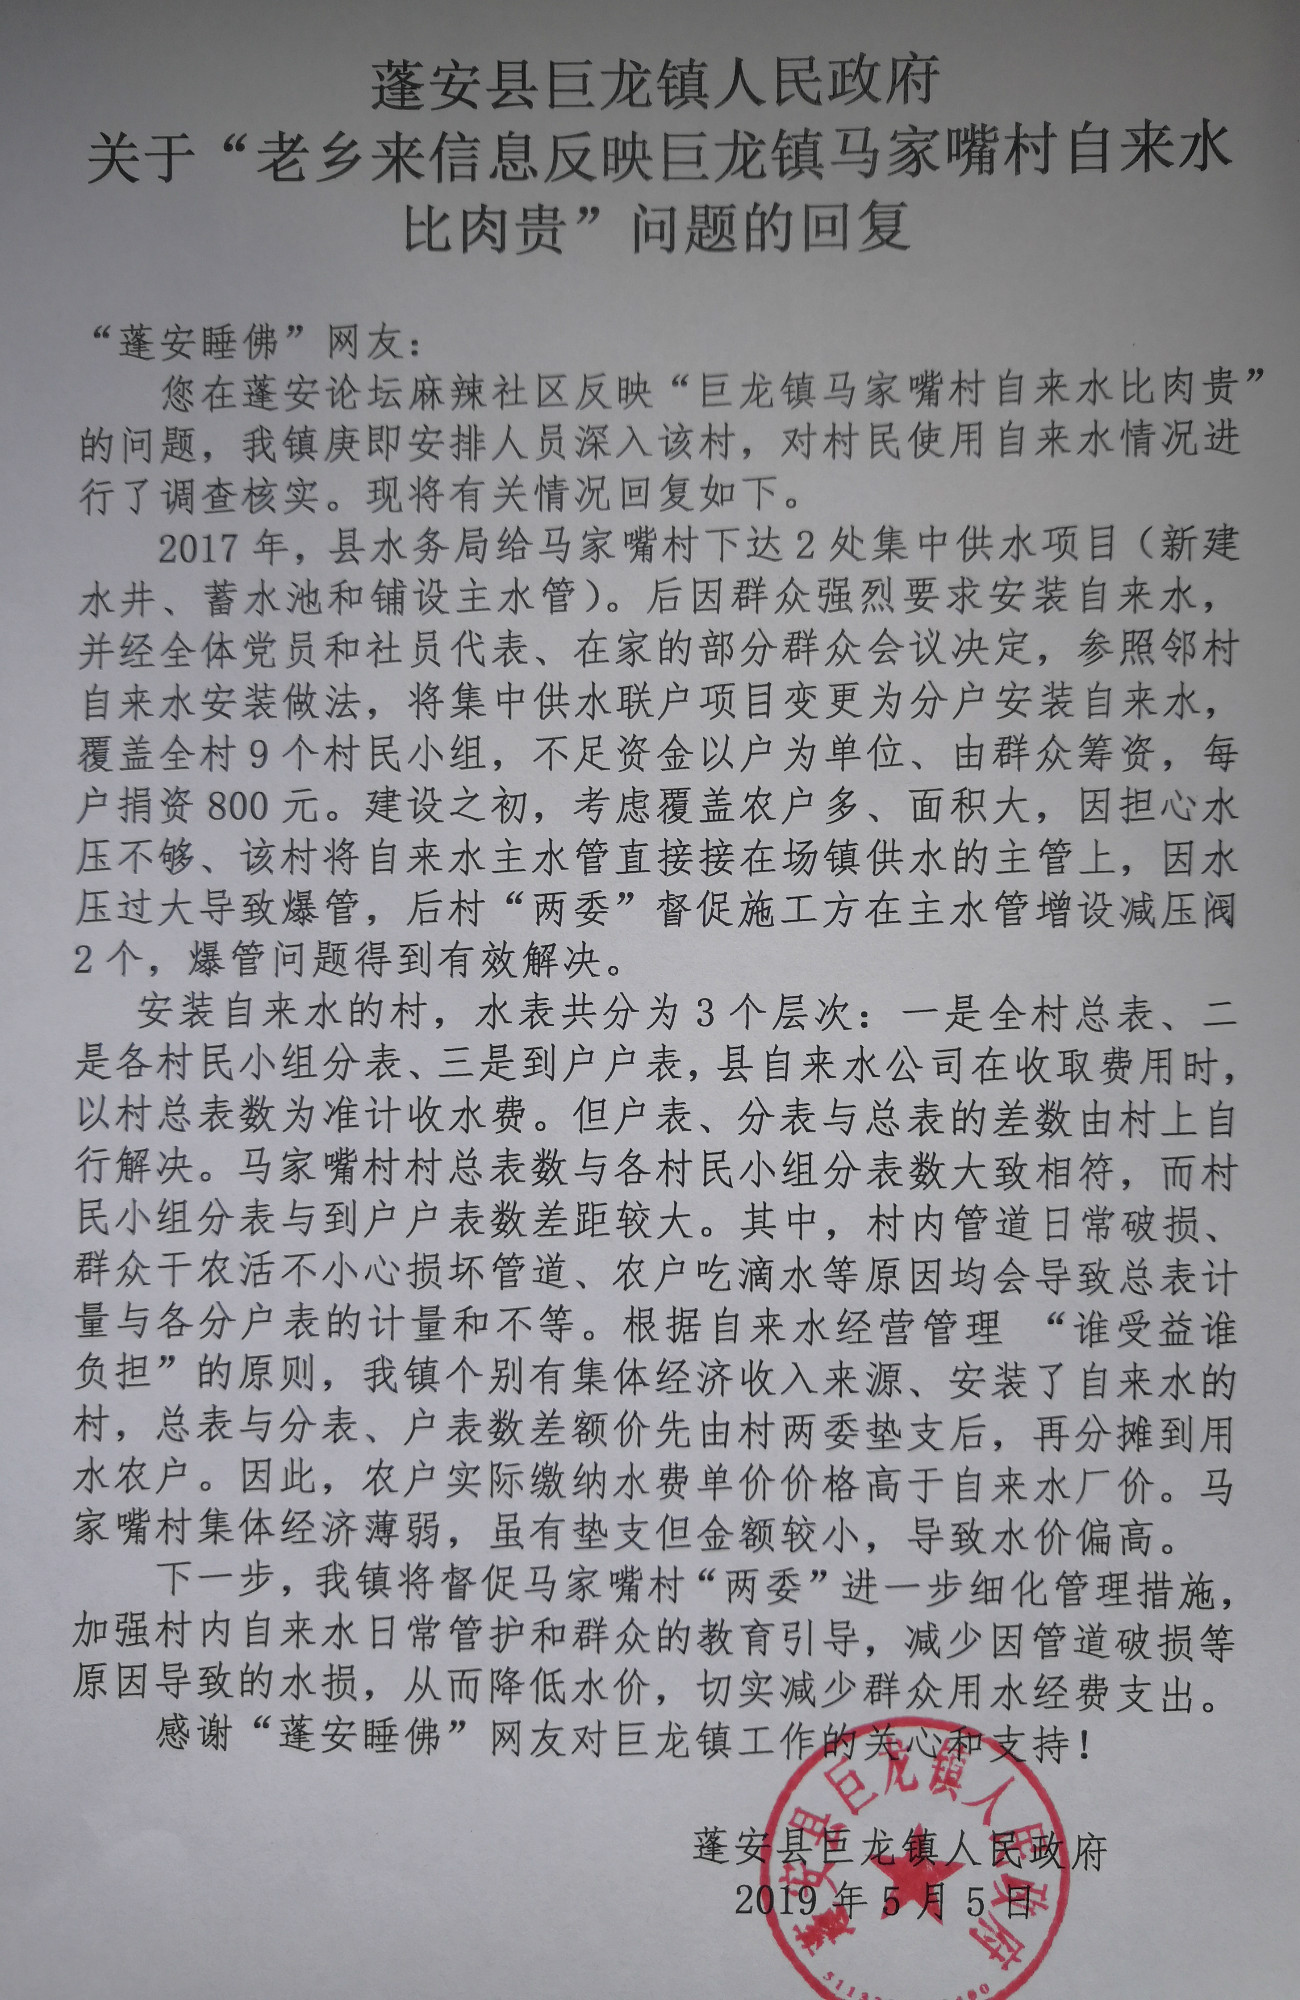 蓬安县巨龙镇人民政府
关于“老乡来信息反映巨龙镇马家嘴村自来水
比肉贵”问题的回复
“蓬安睡佛”网友：
您在蓬安论坛麻辣社区反映“巨龙镇马家嘴村自来水比肉贵”
的问题，我镇庚即安排人员深入该村，对村民使用自来水情况进
行了调查核实。现将有关情况回复如下。
2017年，县水务局给马家嘴村下达2处集中供水项目（新建
水井、蓄水池和铺设主水管）。后因群众强烈要求安装自来水，
并经全体党员和社员代表、在家的部分群众会议决定，参照邻村
自来水安装做法，将集中供水联户项目变更为分户安装自来水，
覆盖全村9个村民小组，不足资金以户为单位、由群众筹资，每
户捐资800元。建设之初，考虑覆盖农户多、面积大，因担心水
压不够、该村将自来水主水管直接接在场镇供水的主管上，因水
压过大导致爆管，后村“两委”督促施工方在主水管增设减压阀
2个，爆管问题得到有效解决。
安装自来水的村，水表共分为3个层次：一是全村总表、二
是各村民小组分表、三是到户户表，县自来水公司在收取费用时，
以村总表数为准计收水费。但户表、分表与总表的差数由村上自
行解决。马家嘴村村总表数与各村民小组分表数大致相符，而村
民小组分表与到户户表数差距较大。其中，村内管道日常破损、
群众干农活不小心损坏管道、农户吃滴水等原因均会导致总表计
量与各分户表的计量和不等。根据自来水经营管理 “谁受益谁
负担”的原则，我镇个别有集体经济收入来源、安装了自来水的
村，总表与分表、户表数差额价先由村两委垫支后，再分摊到用
水农户。因此，农户实际缴纳水费单价价格高于自来水厂价。马
家嘴村集体经济薄弱，虽有垫支但金额较小，导致水价偏高。
下一步，我镇将督促马家嘴村“两委”进一步细化管理措施，
加强村内自来水日常管护和群众的教育引导，减少因管道破损等
原因导致的水损，从而降低水价，切实减少群众用水经费支出。
感谢“蓬安睡佛”网友对巨龙镇工作的关心和支持！
蓬安县巨龙镇人民政府
2019年5月5日
蓬安县巨龙镇人民政府